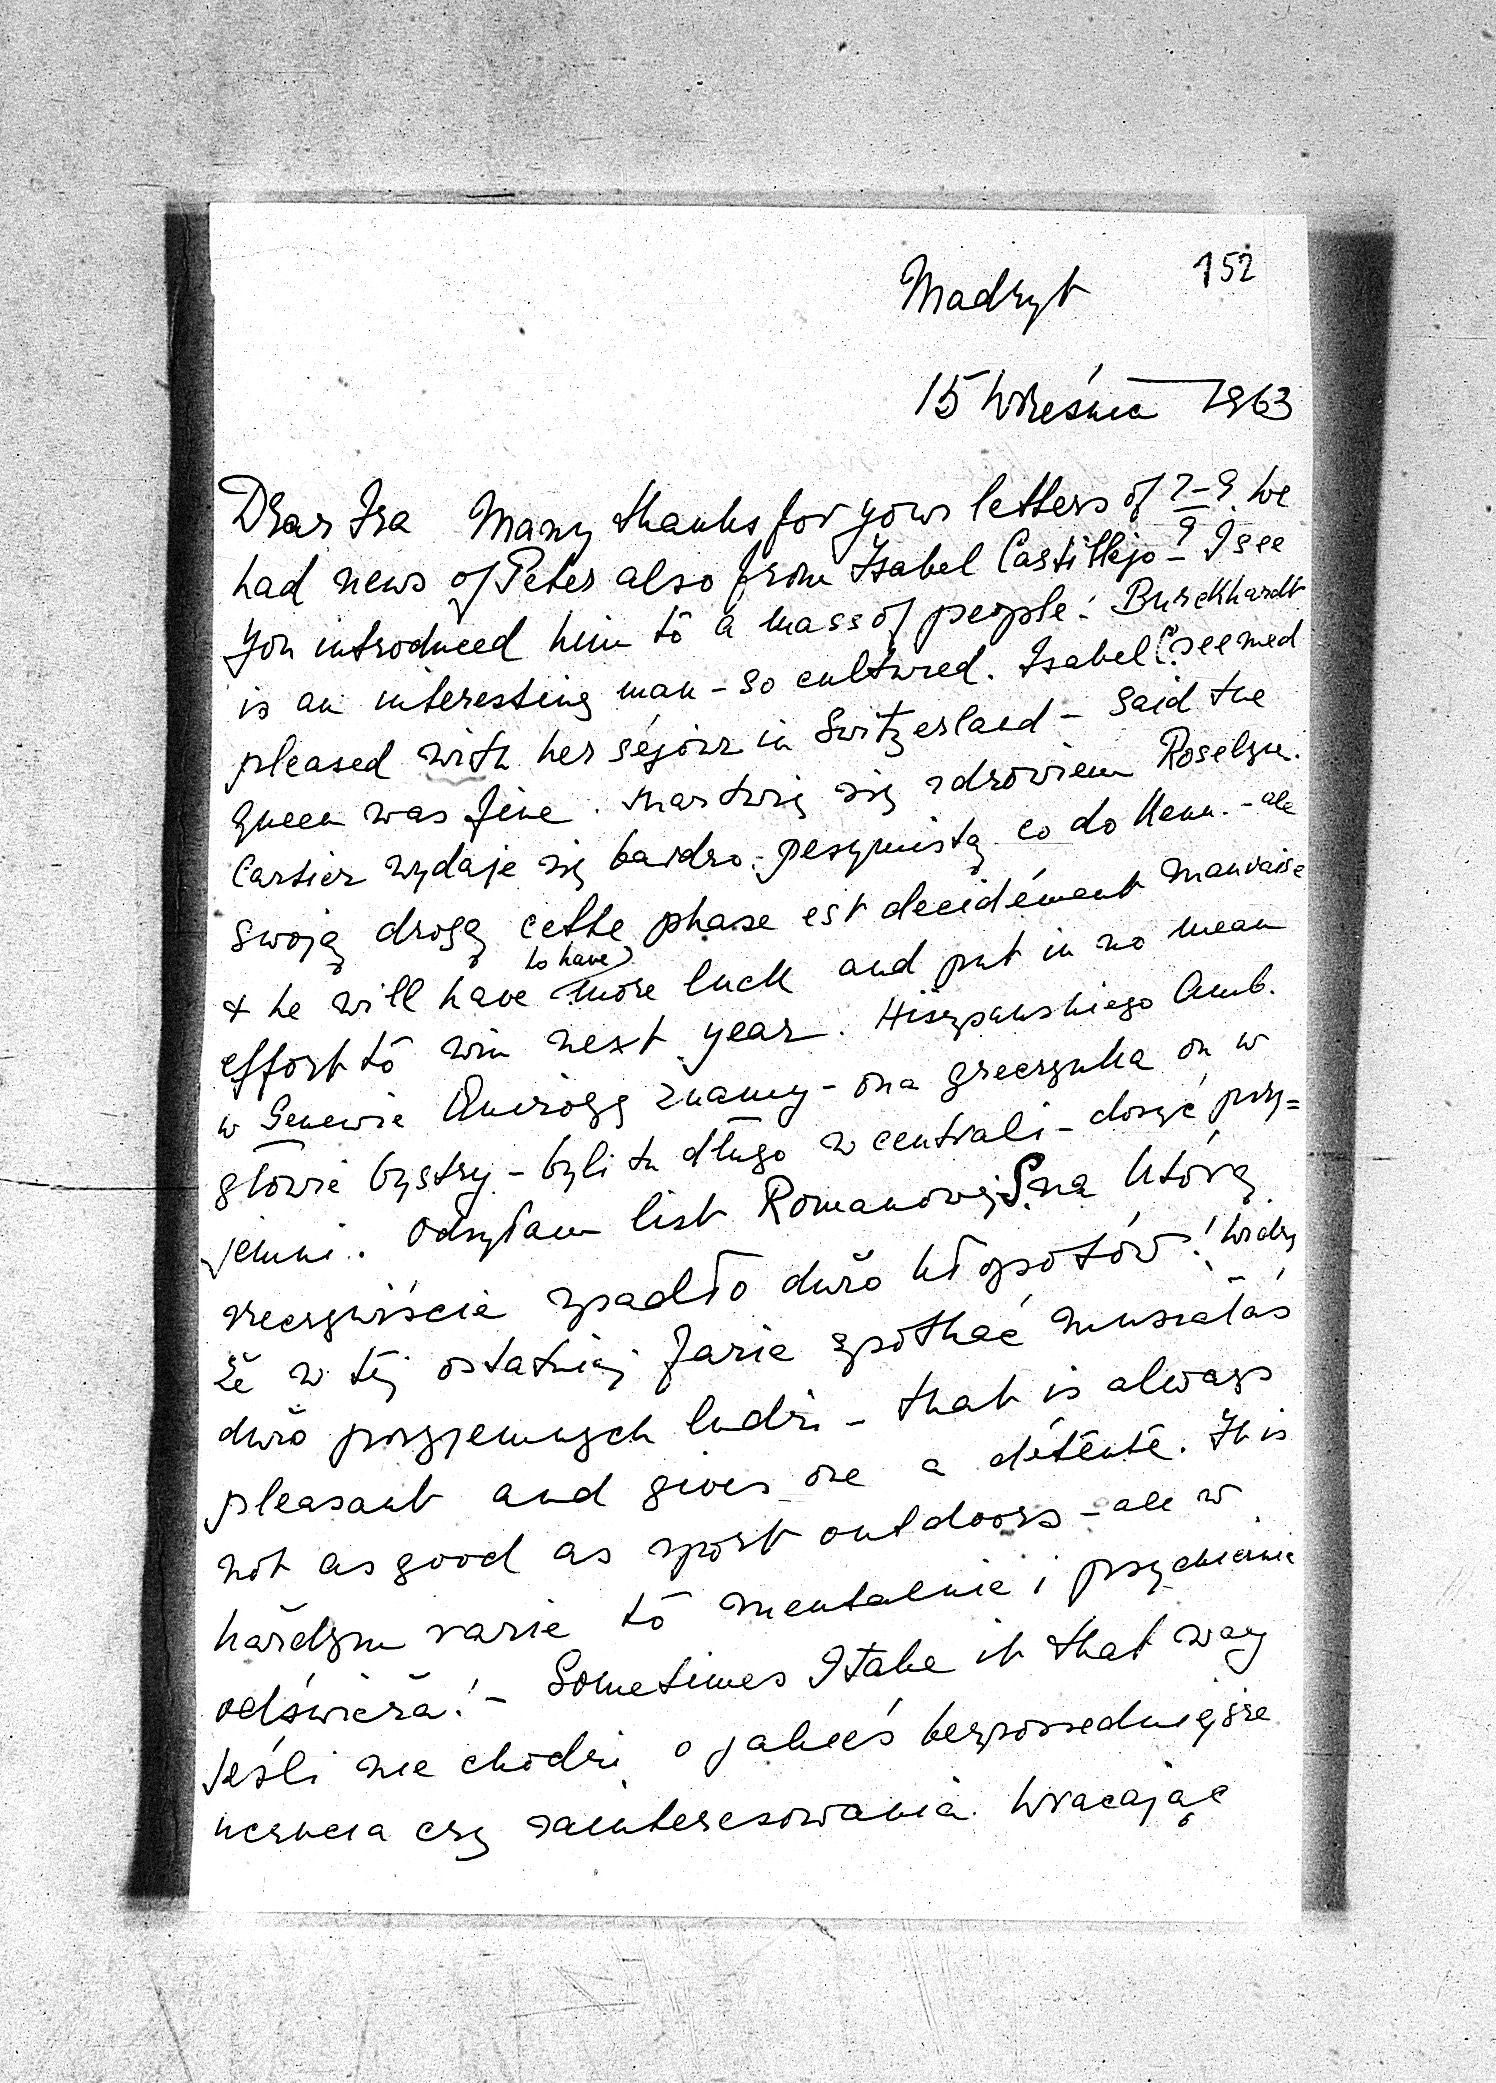 152
Madryt
15 Września 1963
Dear Isa Many thanks for your letters of 7-9. We
had news of Peter also from Isabel Castillejo - I see
you introduced him to a mass of people! Burckhardt
is an interesting man - so cultured. Isabel C. seemed
pleased with her séjour in Switzerland - said the
Queen was fine. Martwię się zdrowiem Roselyn.
Cartier wydaje się bardzo pesymistą co do Kenn. - ale
swoją drogą cette phase est decidément mauvaise
to have
& he will have more luck and put in no mean
effort to win next year. Hiszpańskiego Amb.
w Genewie Quirogę znamy - ona greczynka on w
głowie bystry - byli tu długo w centrali - dosyć przy=
jemni. Odsyłam list Romanowej S. na którą
rzeczywiście spadło dużo kłopotów! Widzę
że w tej ostatniej fazie spotkać musiałaś
dużo przyjemnych ludzi - that is always
pleasant and gives one a détente. It is
not as good as sport outdoors - ale w
każdym razie to mentalnie i psychicznie
odświeża! - Sometimes I take it that way
jeśli nie chodzi o jakieś bezpośredniejsze
uczucia czy zainteresowania. Wracając